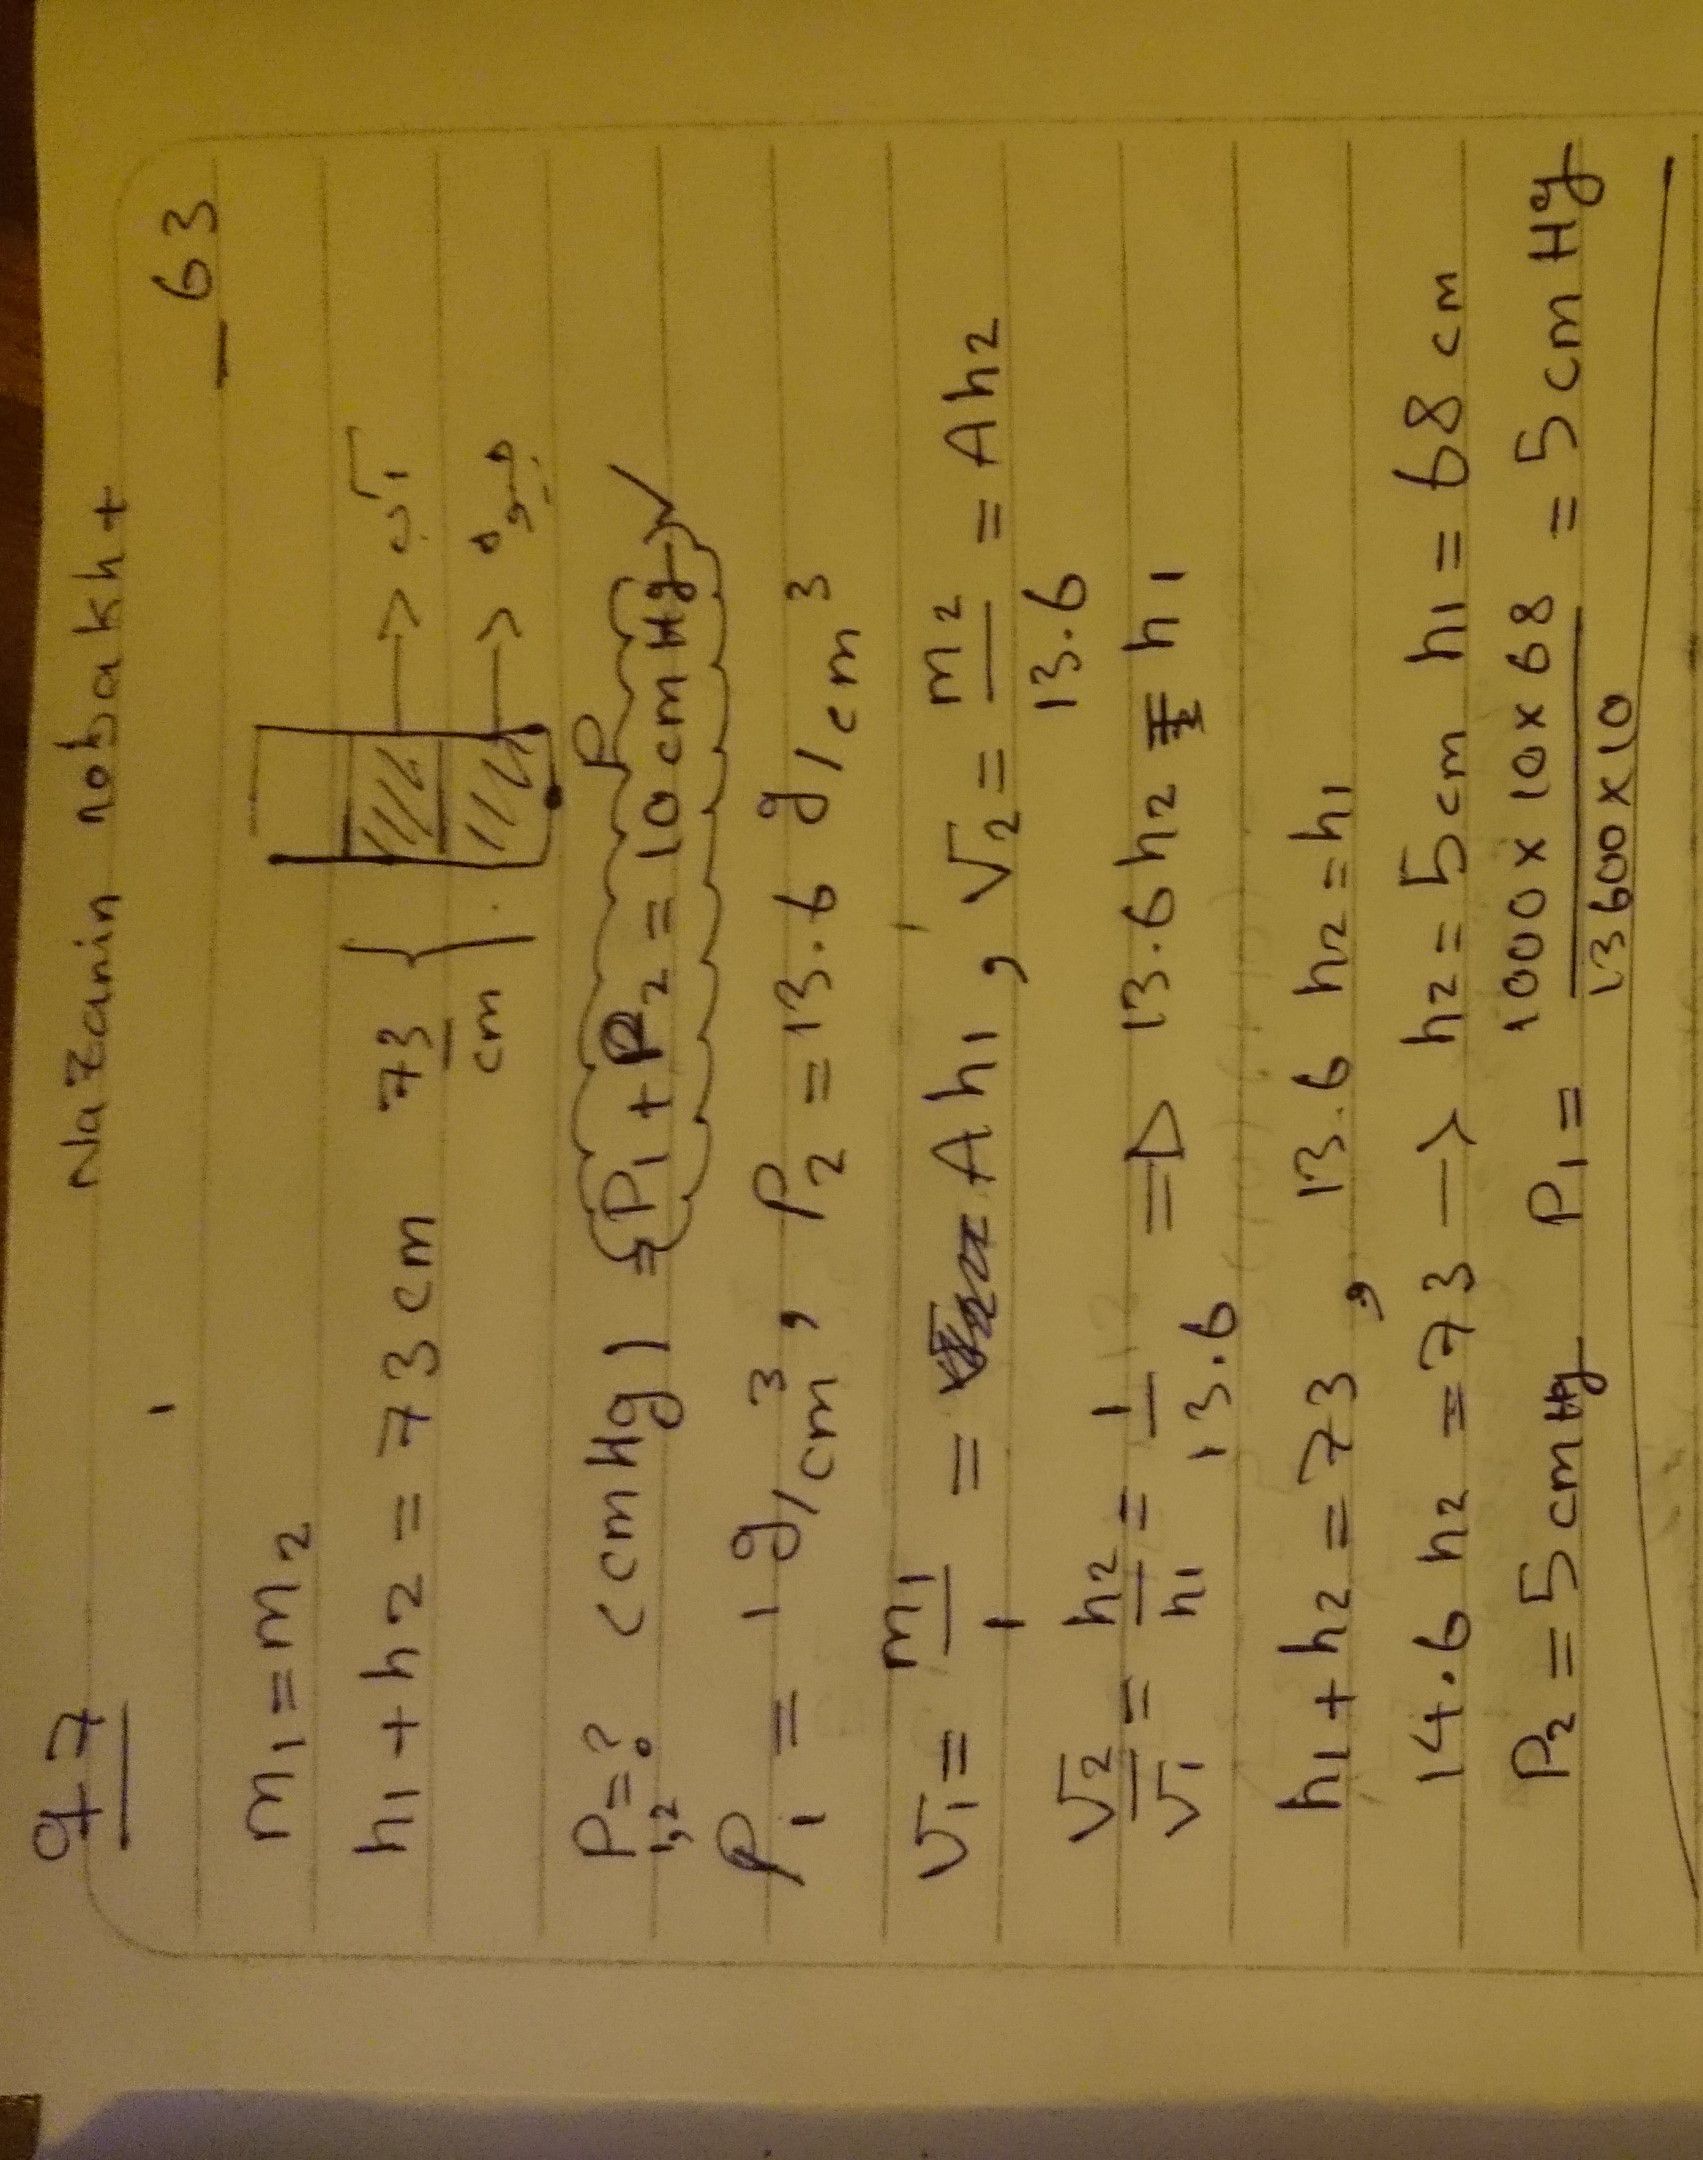 97
Nazanin nobakht
_ 63
m1 = m2
h1 + h2 = 73 cm
73 cm
آب
جیوه
P1,2 = ? (cmHg) = P1 + P2 = 10 cmHg
ρ1 = 1 g/cm³, ρ2 = 13.6 g/cm³
V1 = m1/1 = Ah1, V2 = m2/13.6 = Ah2
V2/V1 = h2/h1 = 1/13.6 => 13.6h2 = h1
h1 + h2 = 73, 13.6 h2 = h1
14.6 h2 = 73 -> h2 = 5cm h1 = 68 cm
P2 = 5cmHg P1 = 1000 x 10 x 68 / 13600 x 10 = 5 cm Hg